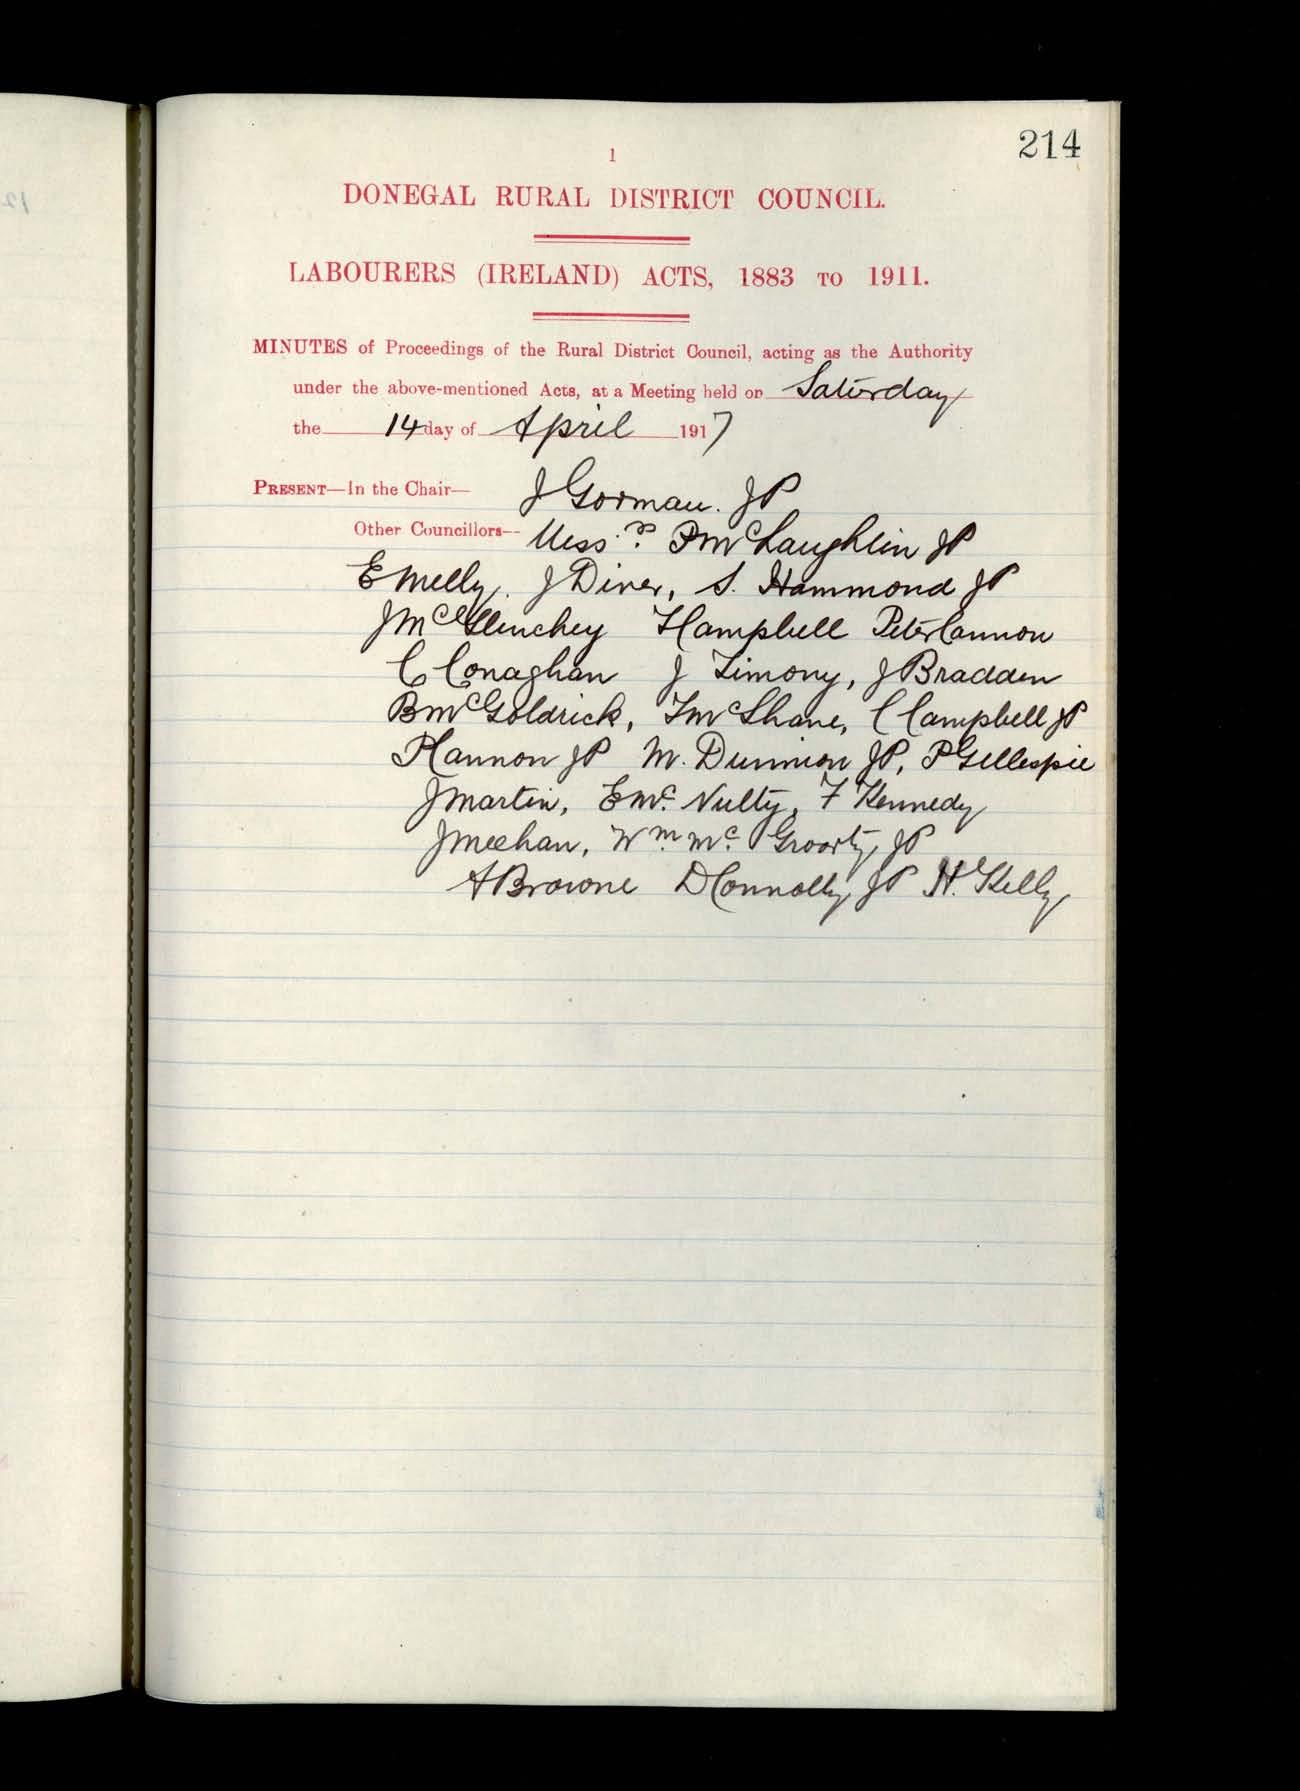 214
1
DONEGAL RURAL DISTRICT COUNCIL.
LABOURERS (IRELAND) ACTS, 1883 TO 1911.
MINUTES of Proceedings of the Rural District Council, acting as the Authority
under the above-mentioned Acts, at a Meeting held on Saturday
the 14 day of April 1917
PRESENT—In the Chair— J Gorman. JP
Other Councillors— Messrs. P McLaughlin JP
E Melly. J Diver, S. Hammond JP
J McGlinchey Campbell Peter Cannon
C Conaghan J Timony, J Bradden
B McGoldrick, T McShane, C Campbell JP
P Cannon JP M. Dunnion JP, P Gillespie
J Martin, E Mc. Nulty, F Kennedy
J Meehan, Wm. Mc. Groorty JP
A Browne D Connolly JP H. Kelly